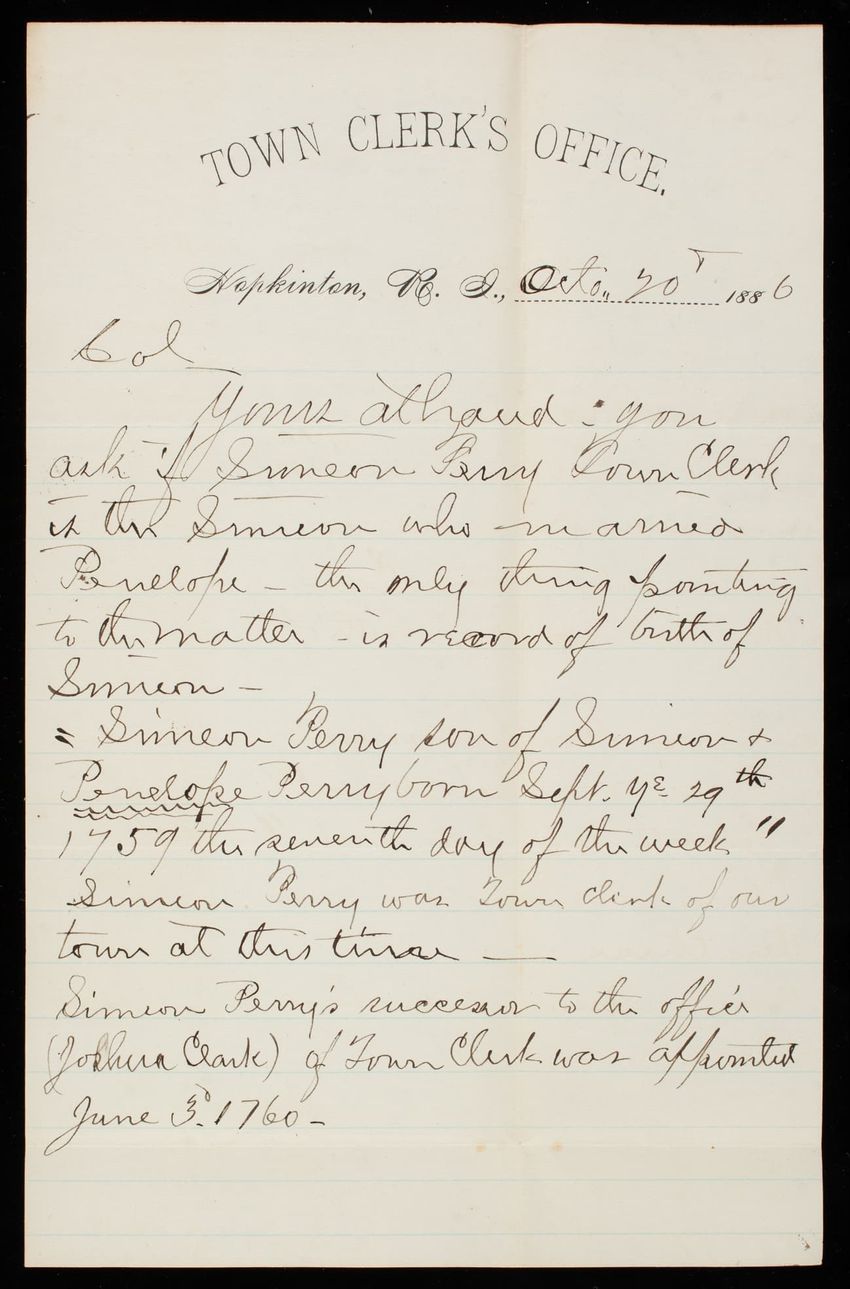 TOWN CLERK'S OFFICE.
Hopkinton, R. I., Octo., 20 1886
Col
Yours at hand : you
ask if Simeon Perry Town Clerk
is the Simeon who married
Penelope - the only thing pointing
to the matter - is record of birth of
Simeon -
= Simeon Perry son of Simeon &
Penelope Perry born Sept. ye 29th
1759 the seventh day of the week "
Simeon Perry was Town clerk of our
town at this time —
Simeon Perry's successor to the office
(Joshua Clark) of Town Clerk was appointed
June 3d. 1760 -